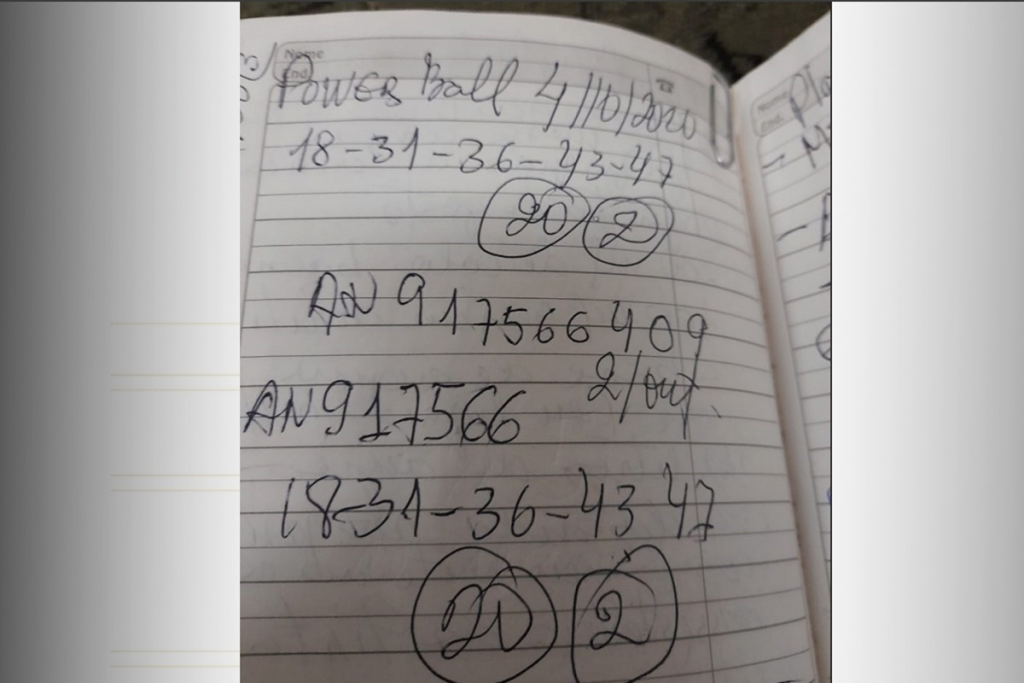 Name
End.
POWER Ball 4/10/2020
18-31-36-43-47
20 2
AN 917566409
2/out.
AN917566
18-31-36-43 47
20 2